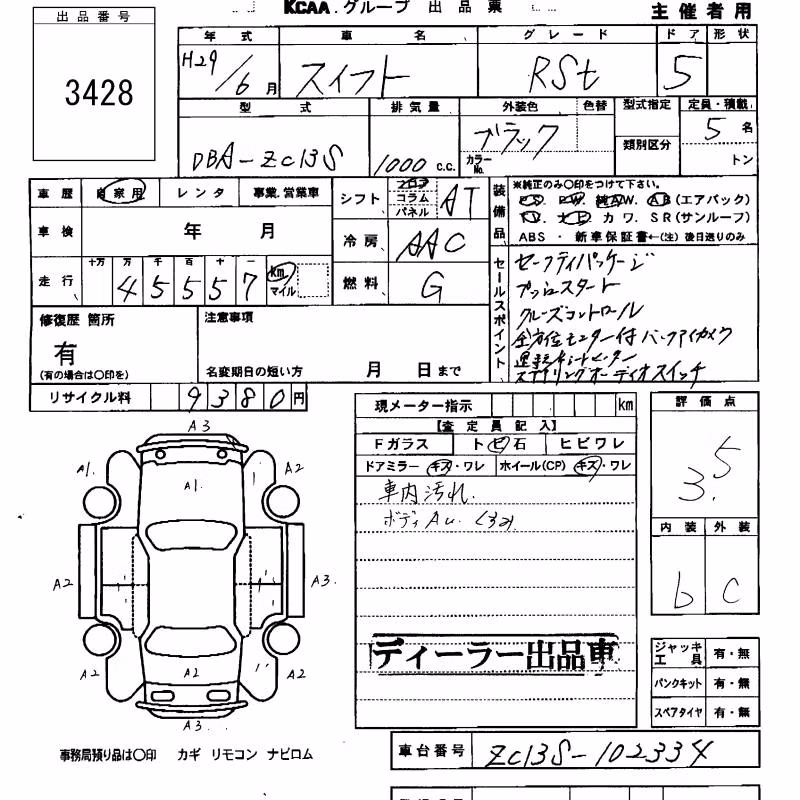 KCAA.グループ 出品票
主催者用
出品番号
3428
年式 車名 グレード ドア 形状
H29/6月 スイフト RSt 5
型式 排気量 外装色 色替 型式指定 定員・積載
DBA-ZC13S 1000 c.c. ブラック カラーNo. 類別区分 5名 トン
車歴 自家用 レンタ 事業.営業車
車検 年 月
走行 十万 万 千 百 十 一
45557 km マイル
シフト フロア コラム パネル AT
冷房 AAC
燃料 G
装備品
※純正のみ〇印をつけて下さい。
PS PW 純AW AB(エアバック)
TV ナビ カワ SR(サンルーフ)
ABS ・ 新車保証書←(注) 後日送りのみ
セールスポイント
セーフティパッケージ
プッシュスタート
クルーズコントロール
全方位モニター付バックアイカメラ
ステアリングオーディオスイッチ
修復歴 箇所
有
(有の場合は〇印を)
注意事項
名変期日の短い方 月 日まで
リサイクル料 9380円
現メーター指示 km
【査定員記入】
Fガラス トビ石 ヒビワレ
ドアミラー キズ・ワレ ホイール(CP) キズ・ワレ
車内汚れ.
評価点
3.5
内装 外装
b C
A3
A1. A1. A2
A2 A3.
A2 A2 A2
A3
ディーラー出品車
ジャッキ工具 有・無
パンクキット 有・無
スペアタイヤ 有・無
事務局預り品は〇印 カギ リモコン ナビロム
車台番号 ZC13S-102334